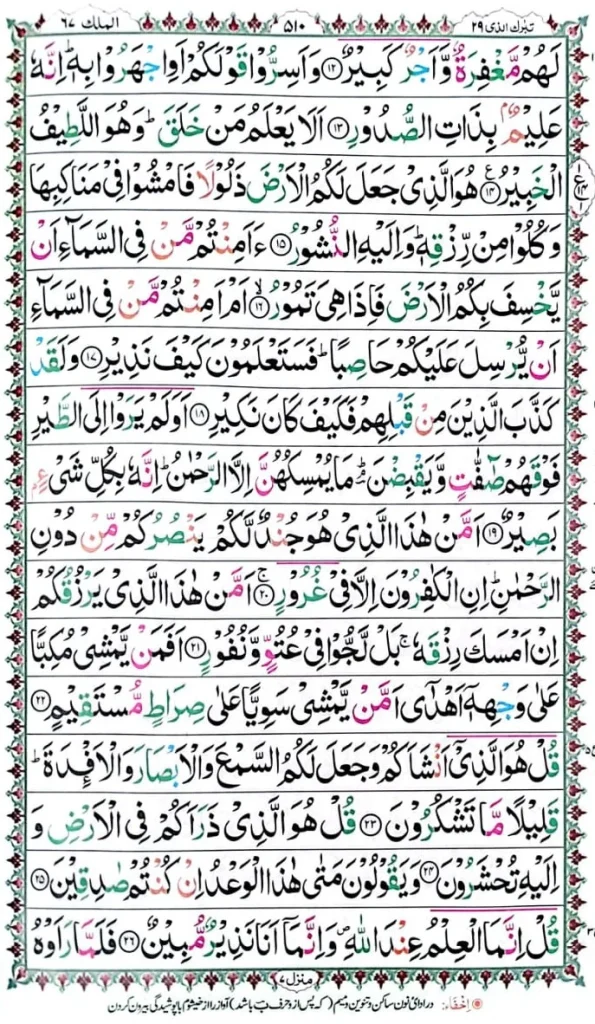 تبٰرك الذی ٢٩
٥١٠
الملك ٦٧
لَهُمْ مَّغْفِرَةٌ وَّاَجْرٌ كَبِيْرٌ ﴿١٢﴾ وَاَسِرُّوْا قَوْلَكُمْ اَوِاجْهَرُوْا بِهٖ ؕ اِنَّهٗ
عَلِيْمٌۢ بِذَاتِ الصُّدُوْرِ ﴿١٣﴾ اَلَا يَعْلَمُ مَنْ خَلَقَ ؕ وَهُوَ اللَّطِيْفُ
الْخَبِيْرُ ﴿١٤﴾ هُوَ الَّذِىْ جَعَلَ لَكُمُ الْاَرْضَ ذَلُوْلًا فَامْشُوْا فِىْ مَنَاكِبِهَا
وَكُلُوْا مِنْ رِّزْقِهٖ ؕ وَاِلَيْهِ النُّشُوْرُ ﴿١٥﴾ ءَاَمِنْتُمْ مَّنْ فِى السَّمَآءِ اَنْ
يَّخْسِفَ بِكُمُ الْاَرْضَ فَاِذَا هِىَ تَمُوْرُ ۙ﴿١٦﴾ اَمْ اَمِنْتُمْ مَّنْ فِى السَّمَآءِ
اَنْ يُّرْسِلَ عَلَيْكُمْ حَاصِبًا ؕ فَسَتَعْلَمُوْنَ كَيْفَ نَذِيْرِ ﴿١٧﴾ وَلَقَدْ
كَذَّبَ الَّذِيْنَ مِنْ قَبْلِهِمْ فَكَيْفَ كَانَ نَكِيْرِ ﴿١٨﴾ اَوَلَمْ يَرَوْا اِلَى الطَّيْرِ
فَوْقَهُمْ صٰٓفّٰتٍ وَّيَقْبِضْنَ ؔؕ مَا يُمْسِكُهُنَّ اِلَّا الرَّحْمٰنُ ؕ اِنَّهٗ بِكُلِّ شَىْءٍۢ
بَصِيْرٌ ﴿١٩﴾ اَمَّنْ هٰذَا الَّذِىْ هُوَ جُنْدٌ لَّكُمْ يَنْصُرُكُمْ مِّنْ دُوْنِ
الرَّحْمٰنِ ؕ اِنِ الْكٰفِرُوْنَ اِلَّا فِىْ غُرُوْرٍ ۚ﴿٢٠﴾ اَمَّنْ هٰذَا الَّذِىْ يَرْزُقُكُمْ
اِنْ اَمْسَكَ رِزْقَهٗ ۚ بَلْ لَّجُّوْا فِىْ عُتُوٍّ وَّنُفُوْرٍ ﴿٢١﴾ اَفَمَنْ يَّمْشِىْ مُكِبًّا
عَلٰى وَجْهِهٖۤ اَهْدٰٓى اَمَّنْ يَّمْشِىْ سَوِيًّا عَلٰى صِرَاطٍ مُّسْتَقِيْمٍ ﴿٢٢﴾
قُلْ هُوَ الَّذِىْۤ اَنْشَاَكُمْ وَجَعَلَ لَكُمُ السَّمْعَ وَالْاَبْصَارَ وَالْاَفْـِٕدَةَ ؕ
قَلِيْلًا مَّا تَشْكُرُوْنَ ﴿٢٣﴾ قُلْ هُوَ الَّذِىْ ذَرَاَكُمْ فِى الْاَرْضِ وَ
اِلَيْهِ تُحْشَرُوْنَ ﴿٢٤﴾ وَيَقُوْلُوْنَ مَتٰى هٰذَا الْوَعْدُ اِنْ كُنْتُمْ صٰدِقِيْنَ ﴿٢٥﴾
قُلْ اِنَّمَا الْعِلْمُ عِنْدَ اللّٰهِ ۪ وَاِنَّمَاۤ اَنَا نَذِيْرٌ مُّبِيْنٌ ﴿٢٦﴾ فَلَمَّا رَاَوْهُ
منزل ٧
اِخفَاء: در ادای نون ساکن و تنوین و میم (که پس از و حرف ب باشد) آواز را از خیشوم با پوشیدگی بیرون کردن